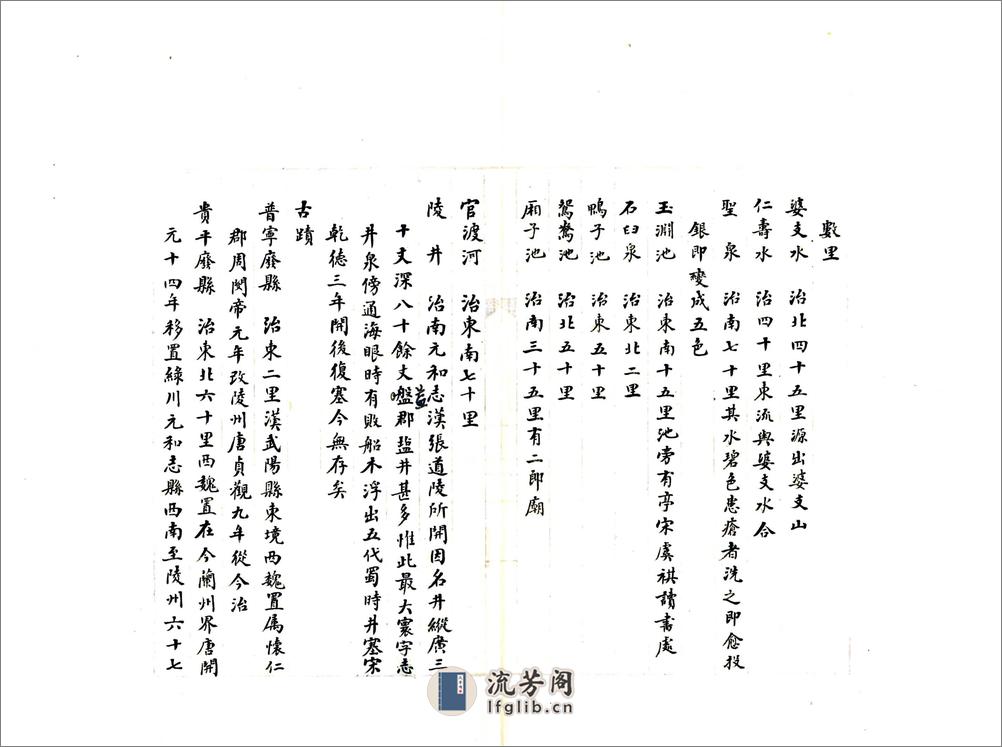 數里
婆支水 治北四十五里源出婆支山
仁壽水 治四十里東流與婆支水合
聖泉 治南七十里其水碧色患瘡者洗之即愈投
銀即變成五色
玉淵池 治東南十五里池旁有亭宋虞祺讀書處
石臼泉 治東北二里
鴨子池 治東五十里
鴛鴦池 治北五十里
廂子池 治南三十五里有二郎廟
官渡河 治東南七十里
陵井 治南元和志漢張道陵所開因名井縱廣三
十丈深八十餘丈益郡盐井甚多惟此最大寰宇志
井泉傍通海眼時有敗船木浮出五代蜀時井塞宋
乾德三年開後復塞今無存矣
古蹟
普寧廢縣 治東二里漢武陽縣東境西魏置屬懷仁
郡周閔帝元年改陵州唐貞觀九年從今治
貴平廢縣 治東北六十里西魏置在今蘭州界唐開
元十四年移置綠川元和志縣西南至陵州六十七
流芳阁
lfglib.cn